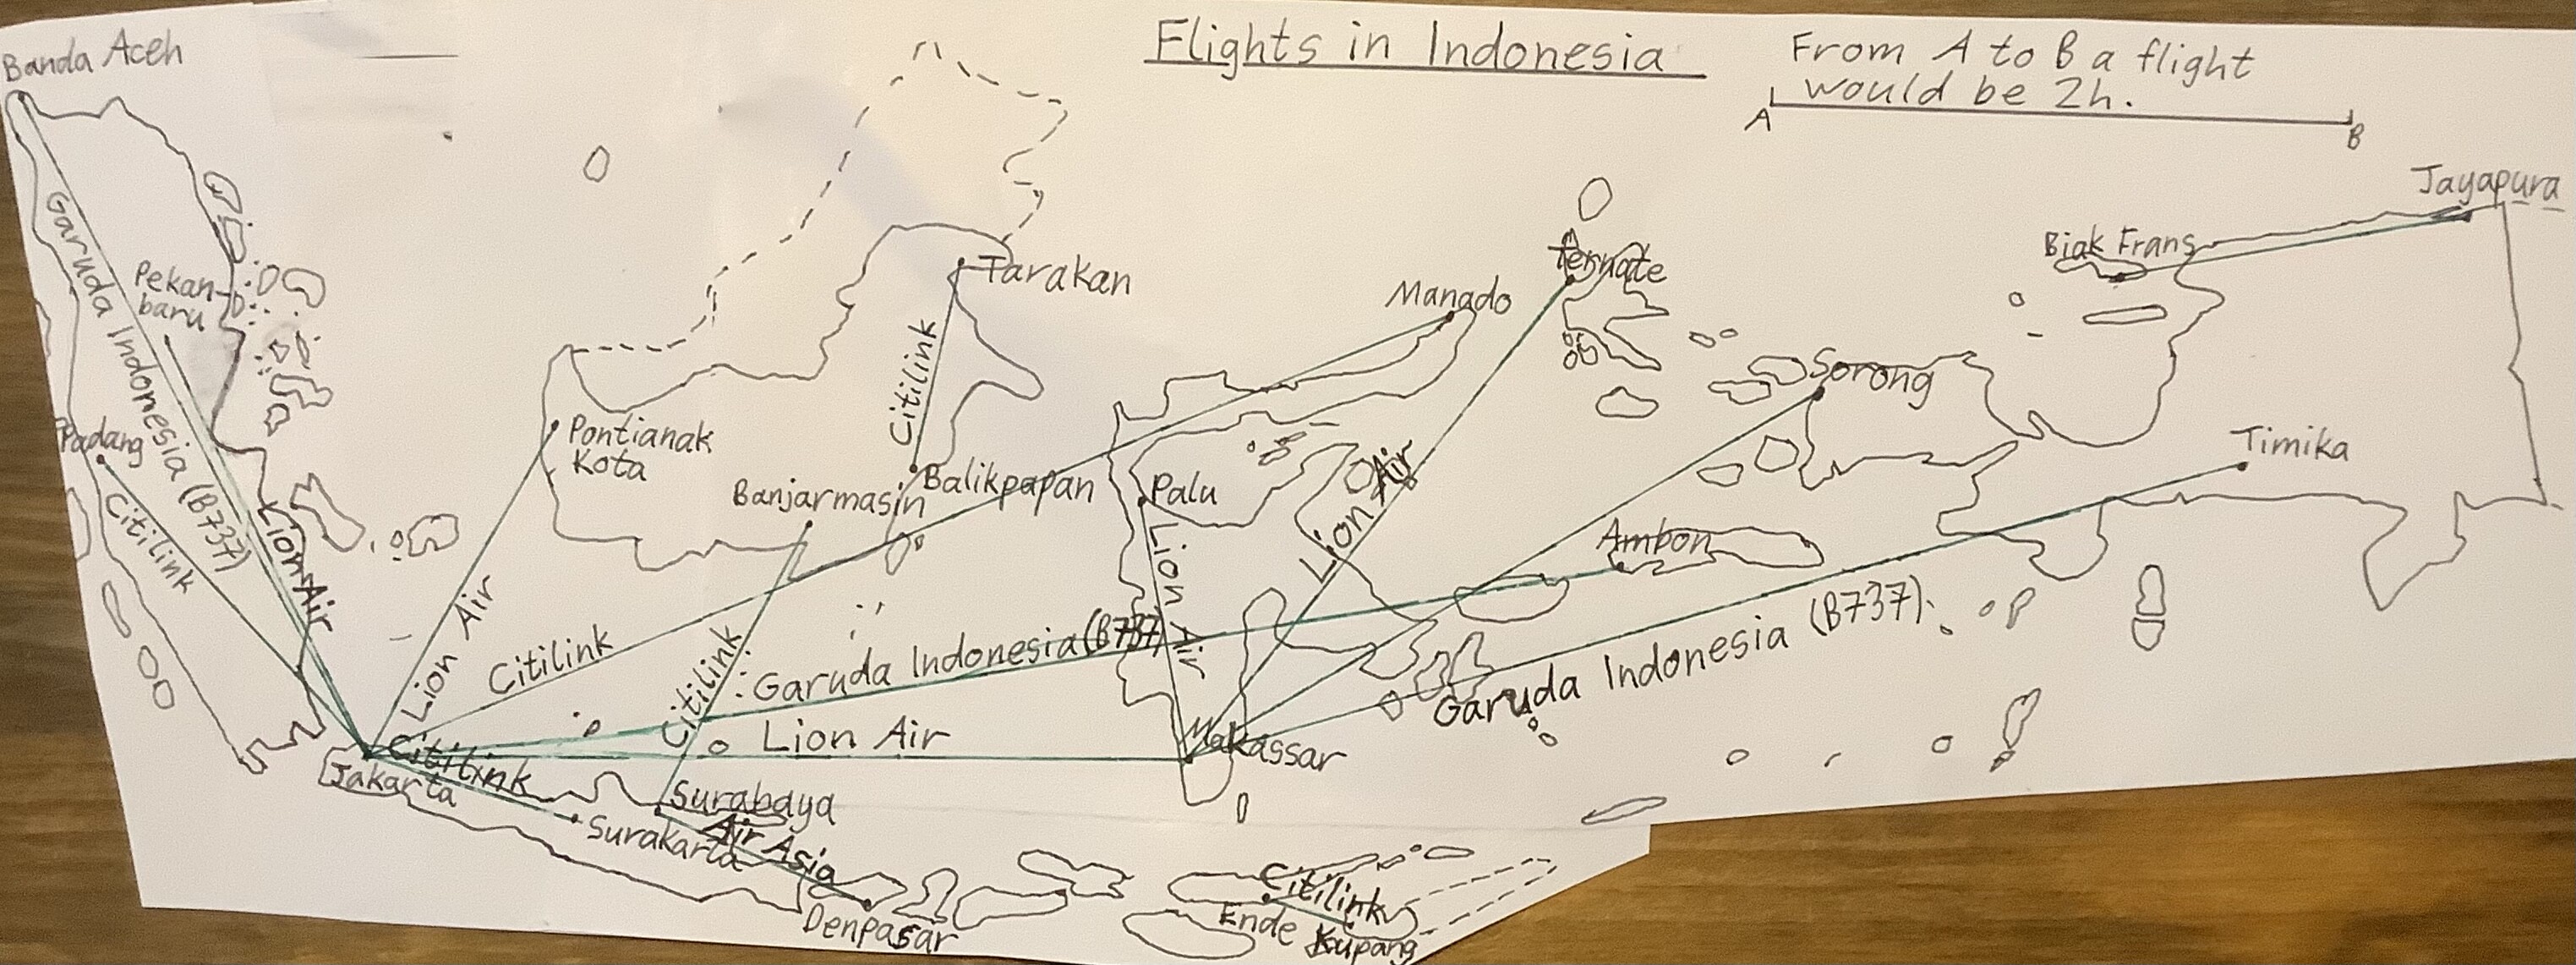 Flights in Indonesia
From A to B a flight
would be 2h.
A
B
Banda Aceh
Garuda Indonesia (B737)
Pekan-
baru
Padang
Citilink
Lion Air
Tarakan
Citilink
Pontianak
Kota
Lion Air
Banjarmasin
Balikpapan
Citilink
Citilink
Garuda Indonesia (B737)
Lion Air
Citilink
Jakarta
Surakarta
Surabaya
Air Asia
Denpasar
Manado
Palu
Lion Air
Makassar
ternate
Lion Air
Sorong
Ambon
Garuda Indonesia (B737)
Biak Frans
Jayapura
Timika
Citilink
Ende
Kupang